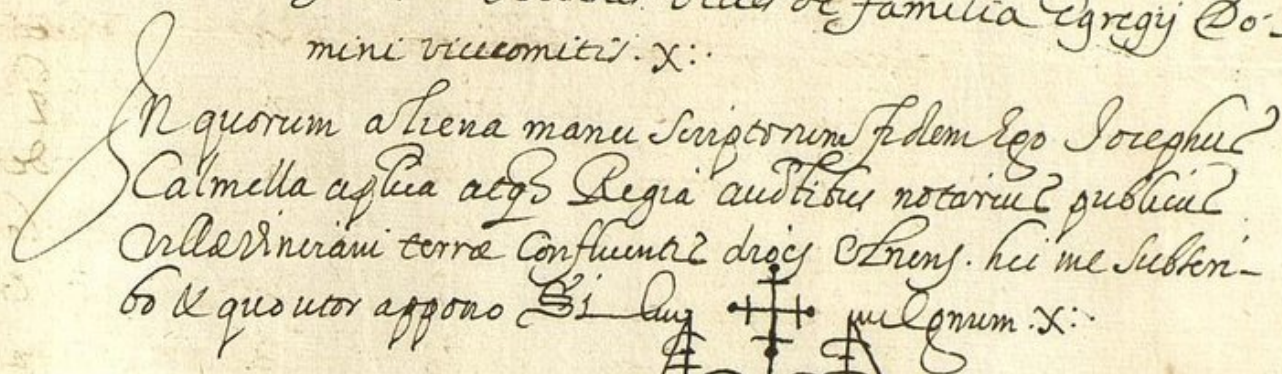 de familia Egregij Do-
mini vicecomitis. X:.
In quorum aliena manu scriptorum fidem Ego Josephus
Calmella aplica atq3 Regia auctibus notarius publicus
villæ Vinciani terræ Confluentis diocs Elnens. hic me subscri-
bo & quo utor appono Si num. X:.